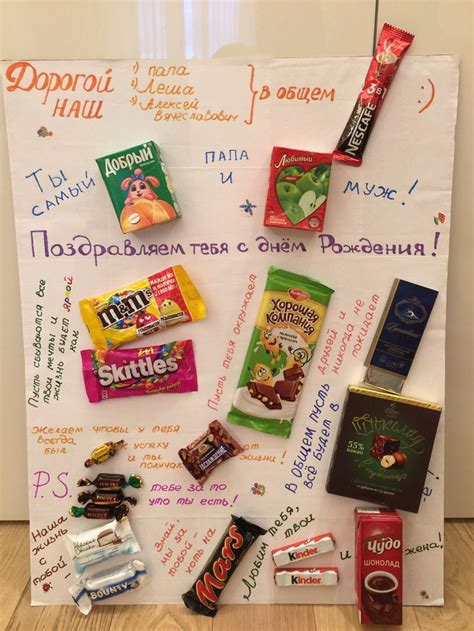 Дорогой
наш
1) папа
2) Леша
3) Алексей
Вячеславович
В общем
:)
3 в 1
NESCAFÉ
Ты
самый
Добрый
папа
и
Любимый
муж!
Поздравляем тебя с днём Рождения!
Пусть сбываются все
твои мечты и
жизнь будет яркой
как
m&m's
Skittles
Пусть тебя окружает
Хорошая
компания
друзей и
никогда не
покидает
Вдохновение
В общем пусть
всё будет в
Шоколаде
55%
какао
Желаем чтобы у тебя
всегда
был
к успеху
и ты
получал
от
жизни!
P.S.
тебе за то
что ты есть!
Наша
жизнь
с
тобой-
BOUNTY
Знай,
мы за
тобой-
хоть на
Mars
Любим тебя,
твои
Kinder
Kinder
и
Чудо
ШОКОЛАД
жена!